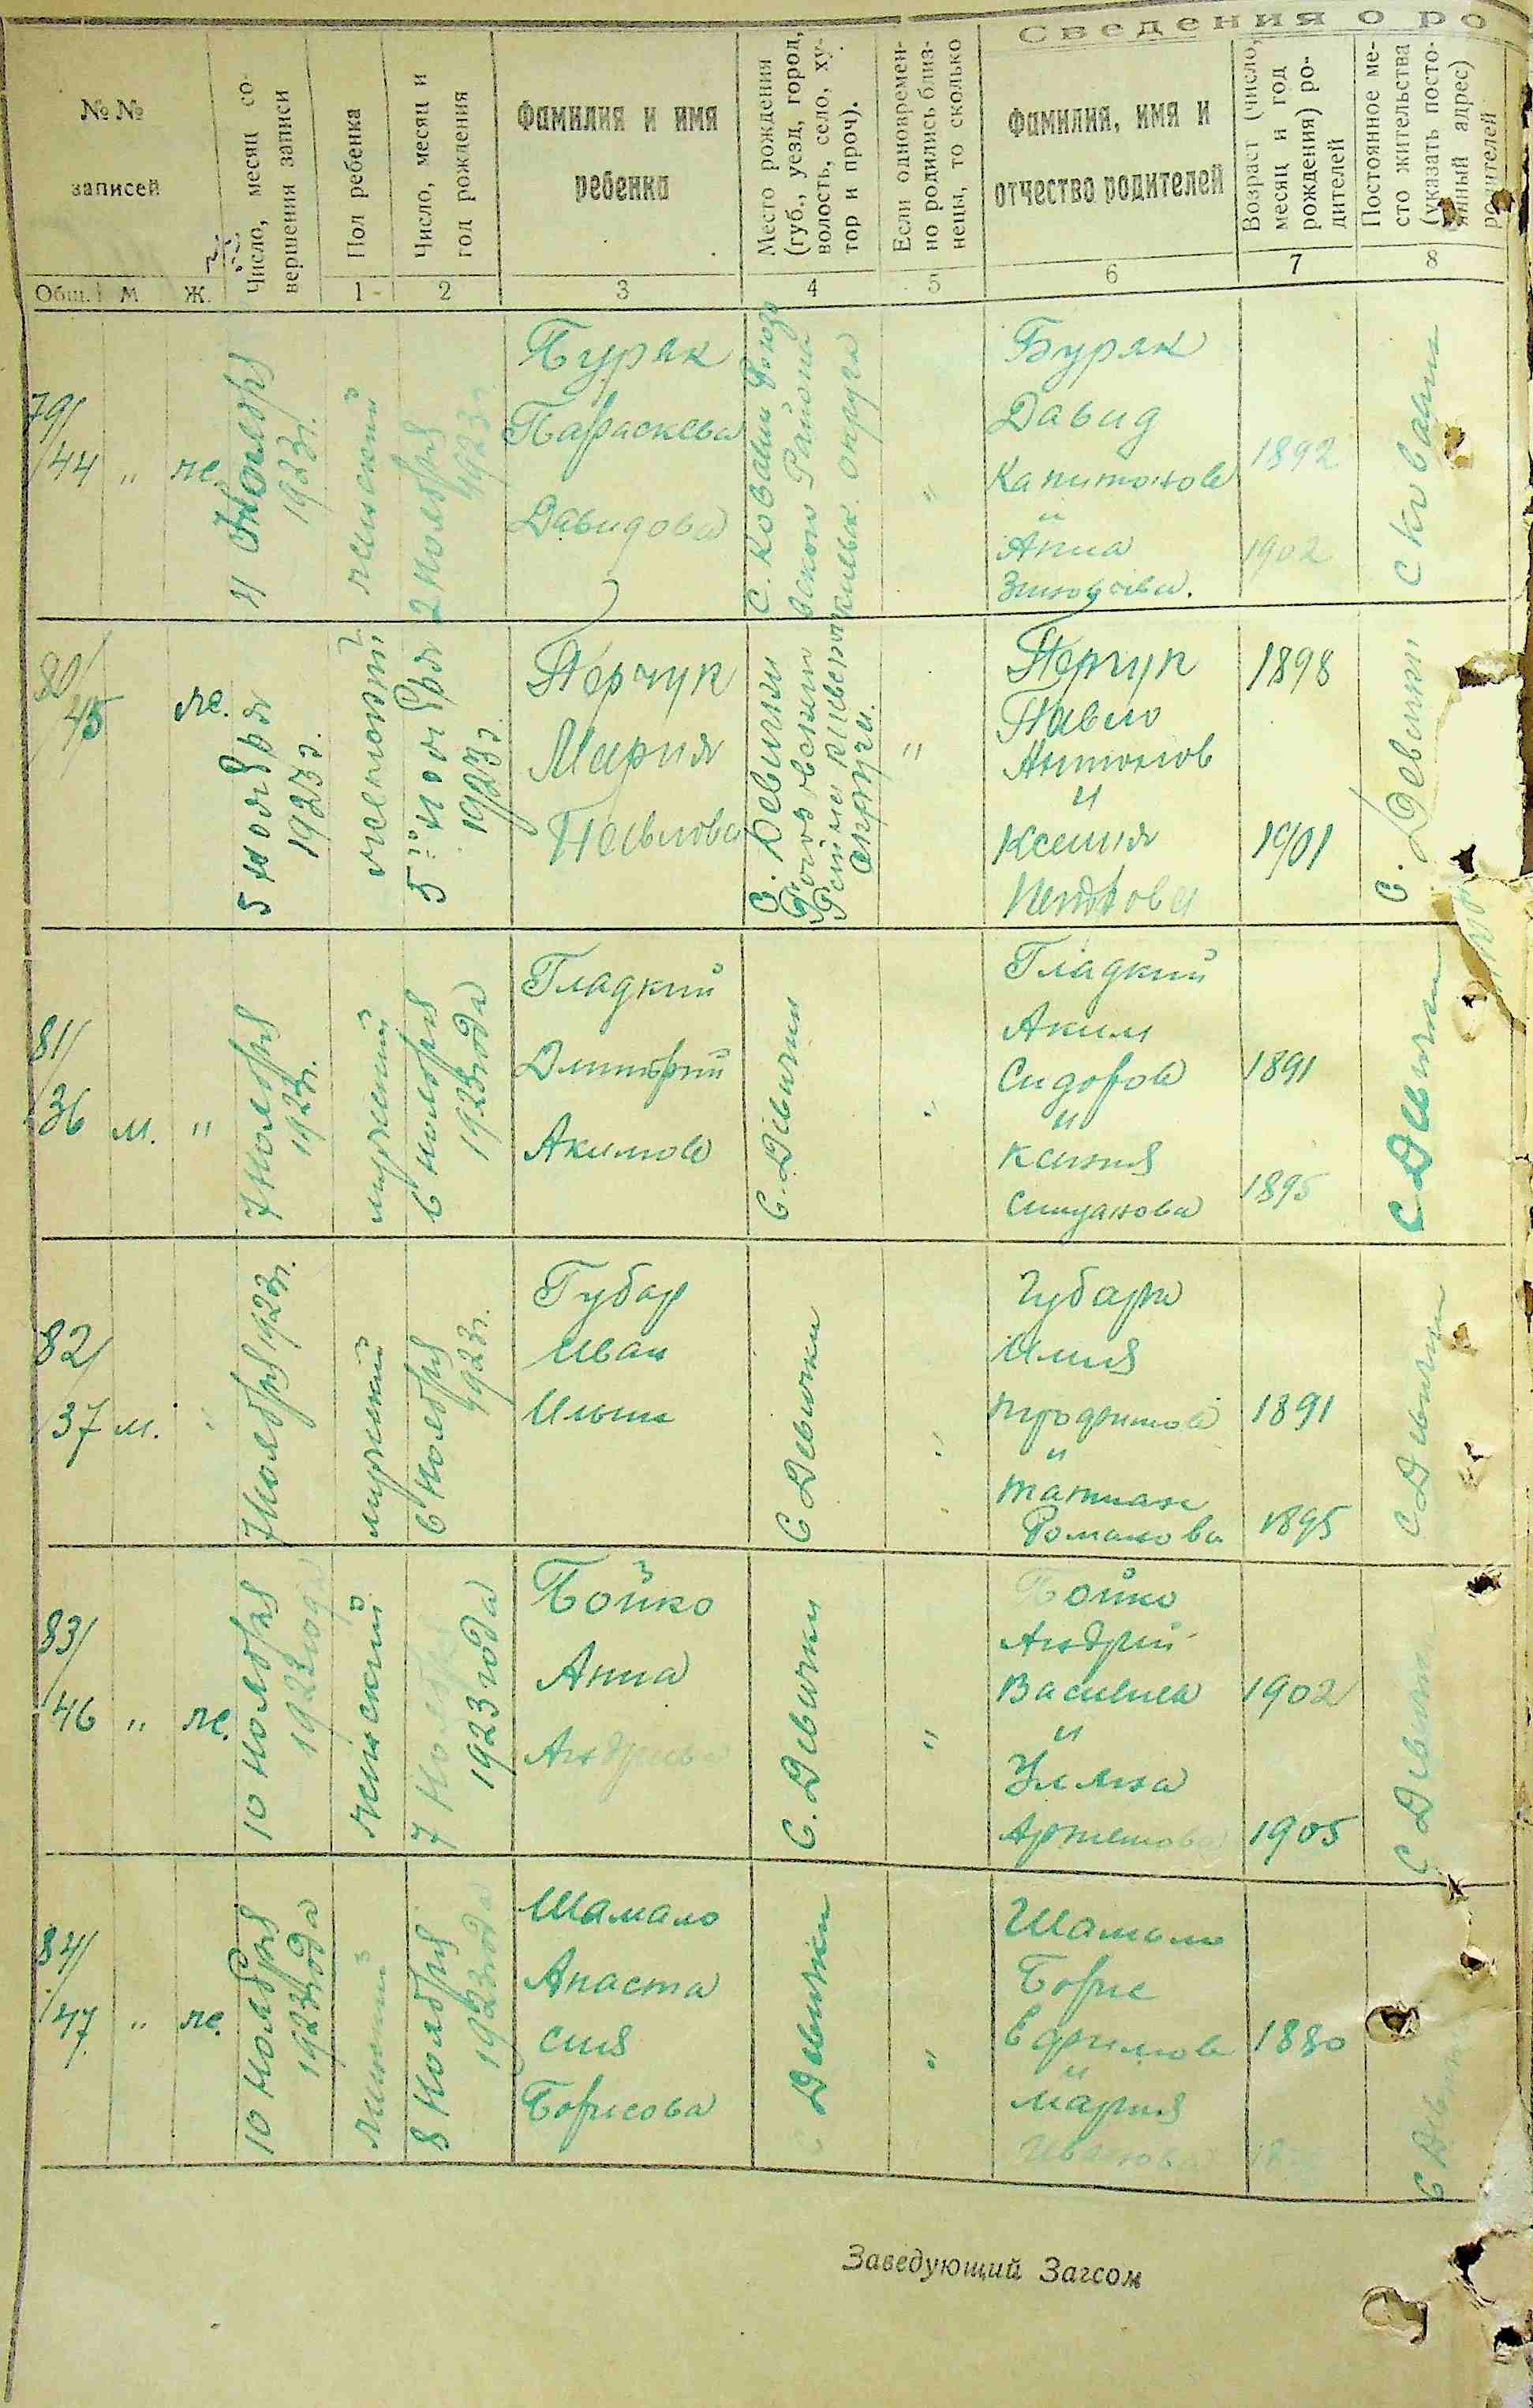 Сведения о ро
№№
записей
Число, месяц со-
вершения записи
Пол ребенка
Число, месяц и
год рождения
Фамилия и имя
ребенка
Место рождения
(губ., уезд, город,
волость, село, ху-
тор и проч).
Если одновремен-
но родились близ-
нецы, то сколько
Фамилия, имя и
отчество родителей
Возраст (число,
месяц и год
рождения) ро-
дителей
Постоянное ме-
сто жительства
(указать посто-
янный адрес)
родителей
Общ. М Ж. 1 2 3 4 5 6 7 8
79/
44 " ж.
4 Ноября
1923г.
женский
2 Ноября
1923г
Буряк
Параскева
Давидова
С. Ковали
Района
округа
"
Буряк
Давид
Капитонов
и
Анна
Зиновьева.
1892
1902
С Ковали
80/
45 ж.
5 ноября
1923г.
женский
5 ноября
1923г.
Перчук
Мария
Павлова
С. Девички
округи.
"
Перчук
Павло
Антонов
и
Ксения
1898
1901
С. Девички
81/
36 м. "
7 Ноября
1923г.
мужский
6 Ноября
1923 года
Гладкий
Дмитрий
Акимов
С. Девички
"
Гладкий
Аким
Сидоров
и
Ксения
1891
1895
С Девички
82/
37 м. "
7 Ноября 1923г.
мужский
6 Ноября
1923г.
Губар
Иван
Ильин
С Девички
"
Губарь
Илия
Трофимов
и
Татиан
Романова
1891
1895
С Девички
83/
46 " ж.
10 Ноября
1923 года
женский
7 Ноября
1923 года
Бойко
Анна
Андриева
С. Девички
"
Бойко
Андрий
Васильев
и
Уляна
Артемова
1902
1905
С Девички
84/
47 " ж.
10 Ноября
1923 года
женский
8 Ноября
1923 года
Шамало
Анаста
сия
Борисова
С Девички
"
Шамало
Борис
Ефимов
и
Мария
Иванова
1880
С Девички
Заведующий Загсом